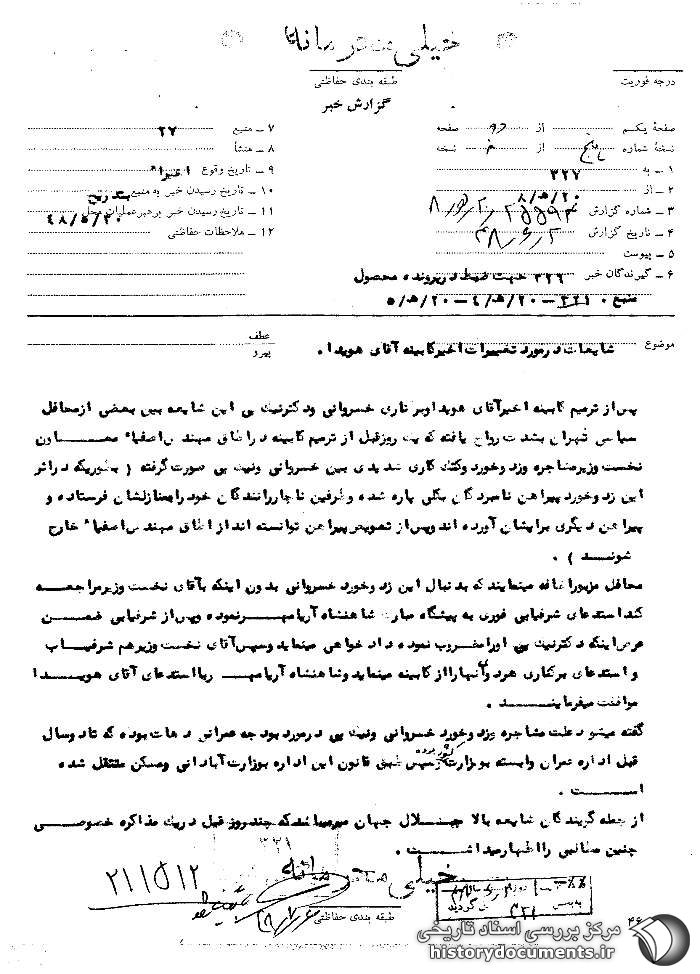 خیلی محرمانه
درجه فوریت
طبقه بندی حفاظتی
گزارش خبر
صفحهٔ یکم از دو صفحه
نسخهٔ شماره از نسخه
۱ ـ به ۳۲۷
۲ ـ از ۲۰/ھ/۸
۳ ـ شماره گزارش
۴ ـ تاریخ گزارش
۵ ـ پیوست
۶ ـ گیرندگان خبر ۳۲۶ جهت ضبط در پرونده محصول
منبع ۳۲۱ – ۲۰/ھ/۴ – ۲۰/ھ/۵
۷ ـ منبع ۲۷
۸ ـ منشأ
۹ ـ تاریخ وقوع اخیراً
۱۰ ـ تاریخ رسیدن خبر به منبع بتدریج
۱۱ ـ تاریخ رسیدن خبر برهبر عملیات محل ۴۸/۵/۲۰
۱۲ ـ ملاحظات حفاظتی
موضوع شایعات در مورد تغییرات اخیر کابینه آقای هویدا .
عطف
پیرو
پس از ترمیم کابینه اخیر آقای هویدا و برکناری خسروانی و دکتر نیک پی این شایعه بین بعضی از محافل
سیاسی تهران بشدت رواج یافته که یک روز قبل از ترمیم کابینه در اطاق مهندس اصفیاء معـــاون
نخست وزیر مشاجره و زد و خورد و کتک کاری شدیدی بین خسروانی و نیک پی صورت گرفته ( بطوریکه در اثر
این زد و خورد پیراهن نامبردگان بکلی پاره شده و طرفین ناچار رانندگان خود را بمنازلشان فرستاده و
پیراهن دیگری برایشان آورده اند و پس از تعویض پیراهن توانسته اند از اطاق مهندس اصفیاء خارج
شونــد ) .
محافل مزبور اضافه مینمایند که بدنبال این زد و خورد خسروانی بدون اینکه بآقای نخست وزیر مراجعــه
کند استدعای شرفیابی فوری به پیشگاه مبارک شاهنشاه آریامهــر نموده و پس از شرفیابی ضمــن
عرض اینکه دکتر نیک پی او را مضروب نموده دادخواهی مینماید و سپس آقای نخست وزیر هم شرفیــاب
و استدعای برکناری هر دو آنها را از کابینه مینماید و شاهنشاه آریامهــر با استدعای آقای هویــدا
موافقت میفرماینــد .
گفته میشود علت مشاجره و زد و خورد خسروانی و نیک پی در مورد بودجه عمرانی دهات بوده که تا دو سال
قبل اداره عمران وابسته بوزارت کشور بوده و سپس طبق قانون این اداره بوزارت آبادانی و مسکن منتقل شده
اســـت .
از جمله گویندگان شایعه بالا جــلال جهان میر میباشد که چند روز قبل در یک مذاکره خصوصــی
چنین مطالبی را اظهار میداشـــت .
۳۲۱
خیلی محرمانه
طبقه بندی حفاظتی
۲۱۱۵۱۲
۴۶
مرکز بررسی اسناد تاریخی
historydocuments.ir